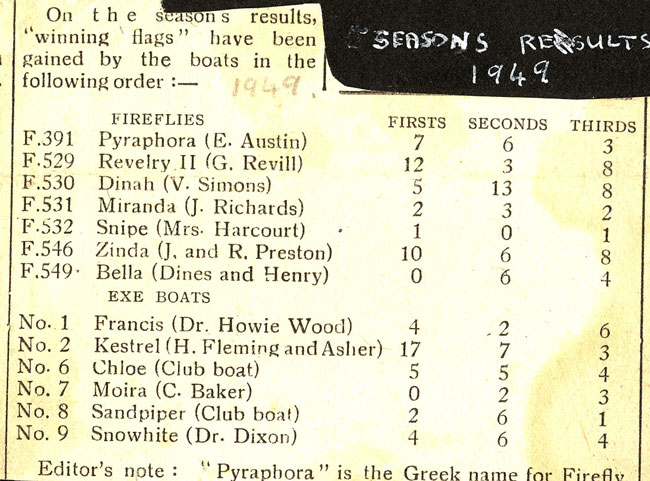 On the season's results,
"winning flags" have been
gained by the boats in the
following order :—
1949.
SEASONS RESULTS
1949
FIREFLIES FIRSTS SECONDS THIRDS
F.391 Pyraphora (E. Austin) 7 6 3
F.529 Revelry II (G. Revill) 12 3 8
F.530 Dinah (V. Simons) 5 13 8
F.531 Miranda (J. Richards) 2 3 2
F.532 Snipe (Mrs. Harcourt) 1 0 1
F.546 Zinda (J. and R. Preston) 10 6 8
F.549 Bella (Dines and Henry) 0 6 4
EXE BOATS
No. 1 Francis (Dr. Howie Wood) 4 2 6
No. 2 Kestrel (H. Fleming and Asher) 17 7 3
No. 6 Chloe (Club boat) 5 5 4
No. 7 Moira (C. Baker) 0 2 3
No. 8 Sandpiper (Club boat) 2 6 1
No. 9 Snowhite (Dr. Dixon) 4 6 4
Editor's note : "Pyraphora" is the Greek name for Firefly